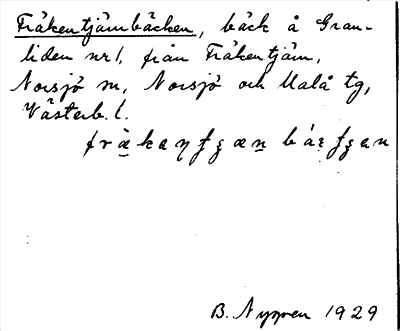 Fräkentjärnbäcken, bäck å Gran-
liden nr 1, från Fräkentjärn,
Norsjö sn, Norsjö och Malå tg,
Västerb. l.
B. Nygren 1929